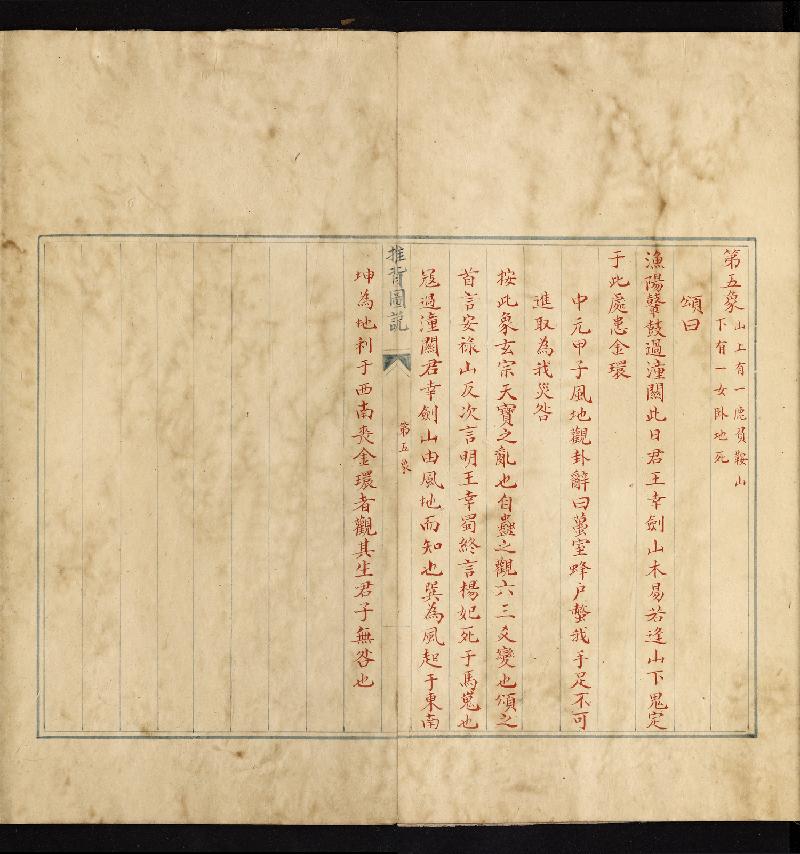 第五象 山上有一鹿負鞍山
下有一女卧地死
頌曰
漁陽鼙鼓過潼關此日君王幸劍山木易若逢山下鬼定
于此處患金環
中元甲子風地觀卦辭曰蠆室蜂户螫我手足不可
進取為我災咎
按此象玄宗天寶之亂也自蠱之觀六三爻變也頌之
首言安祿山反次言明王幸蜀終言楊妃死于馬嵬也
寇過潼關君幸劍山由風地而知也巽為風起于東南
推背圖説
第五象
坤為地利于西南喪金環者觀其生君子無咎也